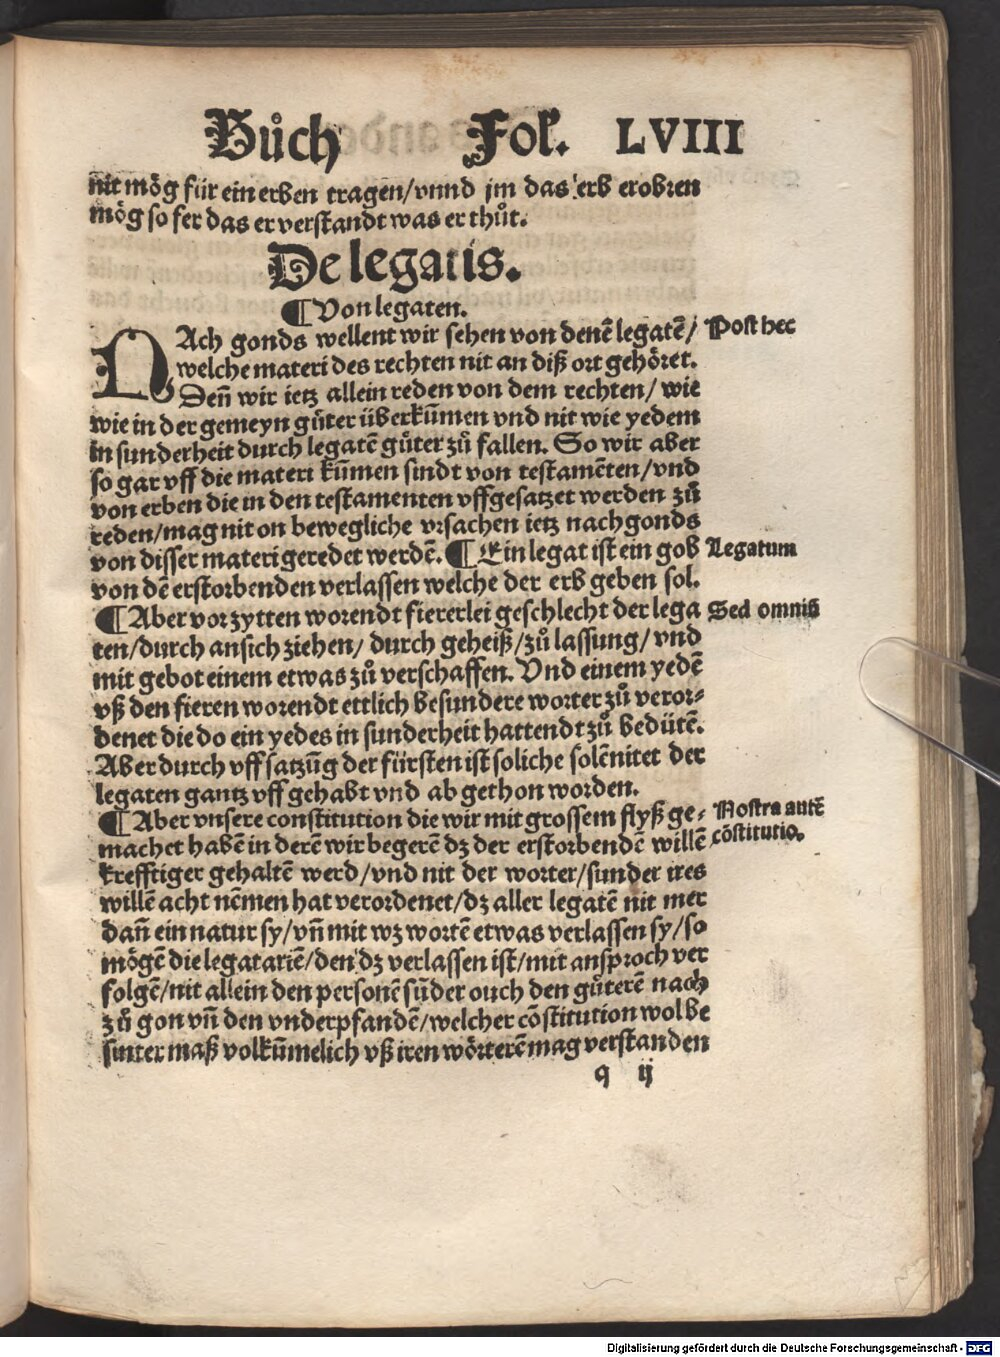 Bůch Fol. LVIII
nit mög für ein erben tragen/vnnd jm das erb erobren
mög so fer das er verstandt was er thůt.
De legatis.
¶ Von legaten.
NAch gonds wellent wir sehen von denē legatē/ Post hec
welche materi des rechten nit an diß ort gehöret.
Deñ wir ietz allein reden von dem rechten/ wie
wie in der gemeyn gůter überkūmen vnd nit wie yedem
in sunderheit durch legatē gůter zů fallen. So wir aber
so gar vff die materi kūmen sindt von testamēten/vnd
von erben die in den testamenten vffgesatzet werden zů
reden/mag nit on bewegliche vrsachen ietz nachgonds
von disser materi geredet werdē. ¶ Ein legat ist ein gob Legatum
von dē erstorbenden verlassen welche der erb geben sol.
¶ Aber vor zytten worendt fiererlei geschlecht der lega Sed omnis
ten/durch ansich ziehen/ durch geheiß/zů lassung/vnd
mit gebot einem etwas zů verschaffen. Vnd einem yedē
vß den fieren worendt ettlich besundere worter zů veror⸗
denet die do ein yedes in sunderheit hattendt zů bedütē.
Aber durch vffsatzūg der fürsten ist soliche solēnitet der
legaten gantz vff gehabt vnd ab gethon worden.
¶ Aber vnsere constitution die wir mit grossem flyß ge⸗ Nostra autē
machet habē in derē wir begerē dz der erstorbendē willē cōstitutio.
krefftiger gehaltē werd/vnd nit der worter/sunder ires
willē acht nēmen hat verordenet/dz aller legatē nit mer
dañ ein natur sy/vñ mit wz wortē etwas verlassen sy/so
mögē die legatariē/den dz verlassen ist/mit ansproch ver
folgē/nit allein den personē sūder ouch den gůterē nach
zů gon vñ den vnderpfandē/welcher cōstitution wol be
sinter maß volkūmelich vß iren wörterē mag verstanden
q ij
Digitalisierung gefördert durch die Deutsche Forschungsgemeinschaft - DFG